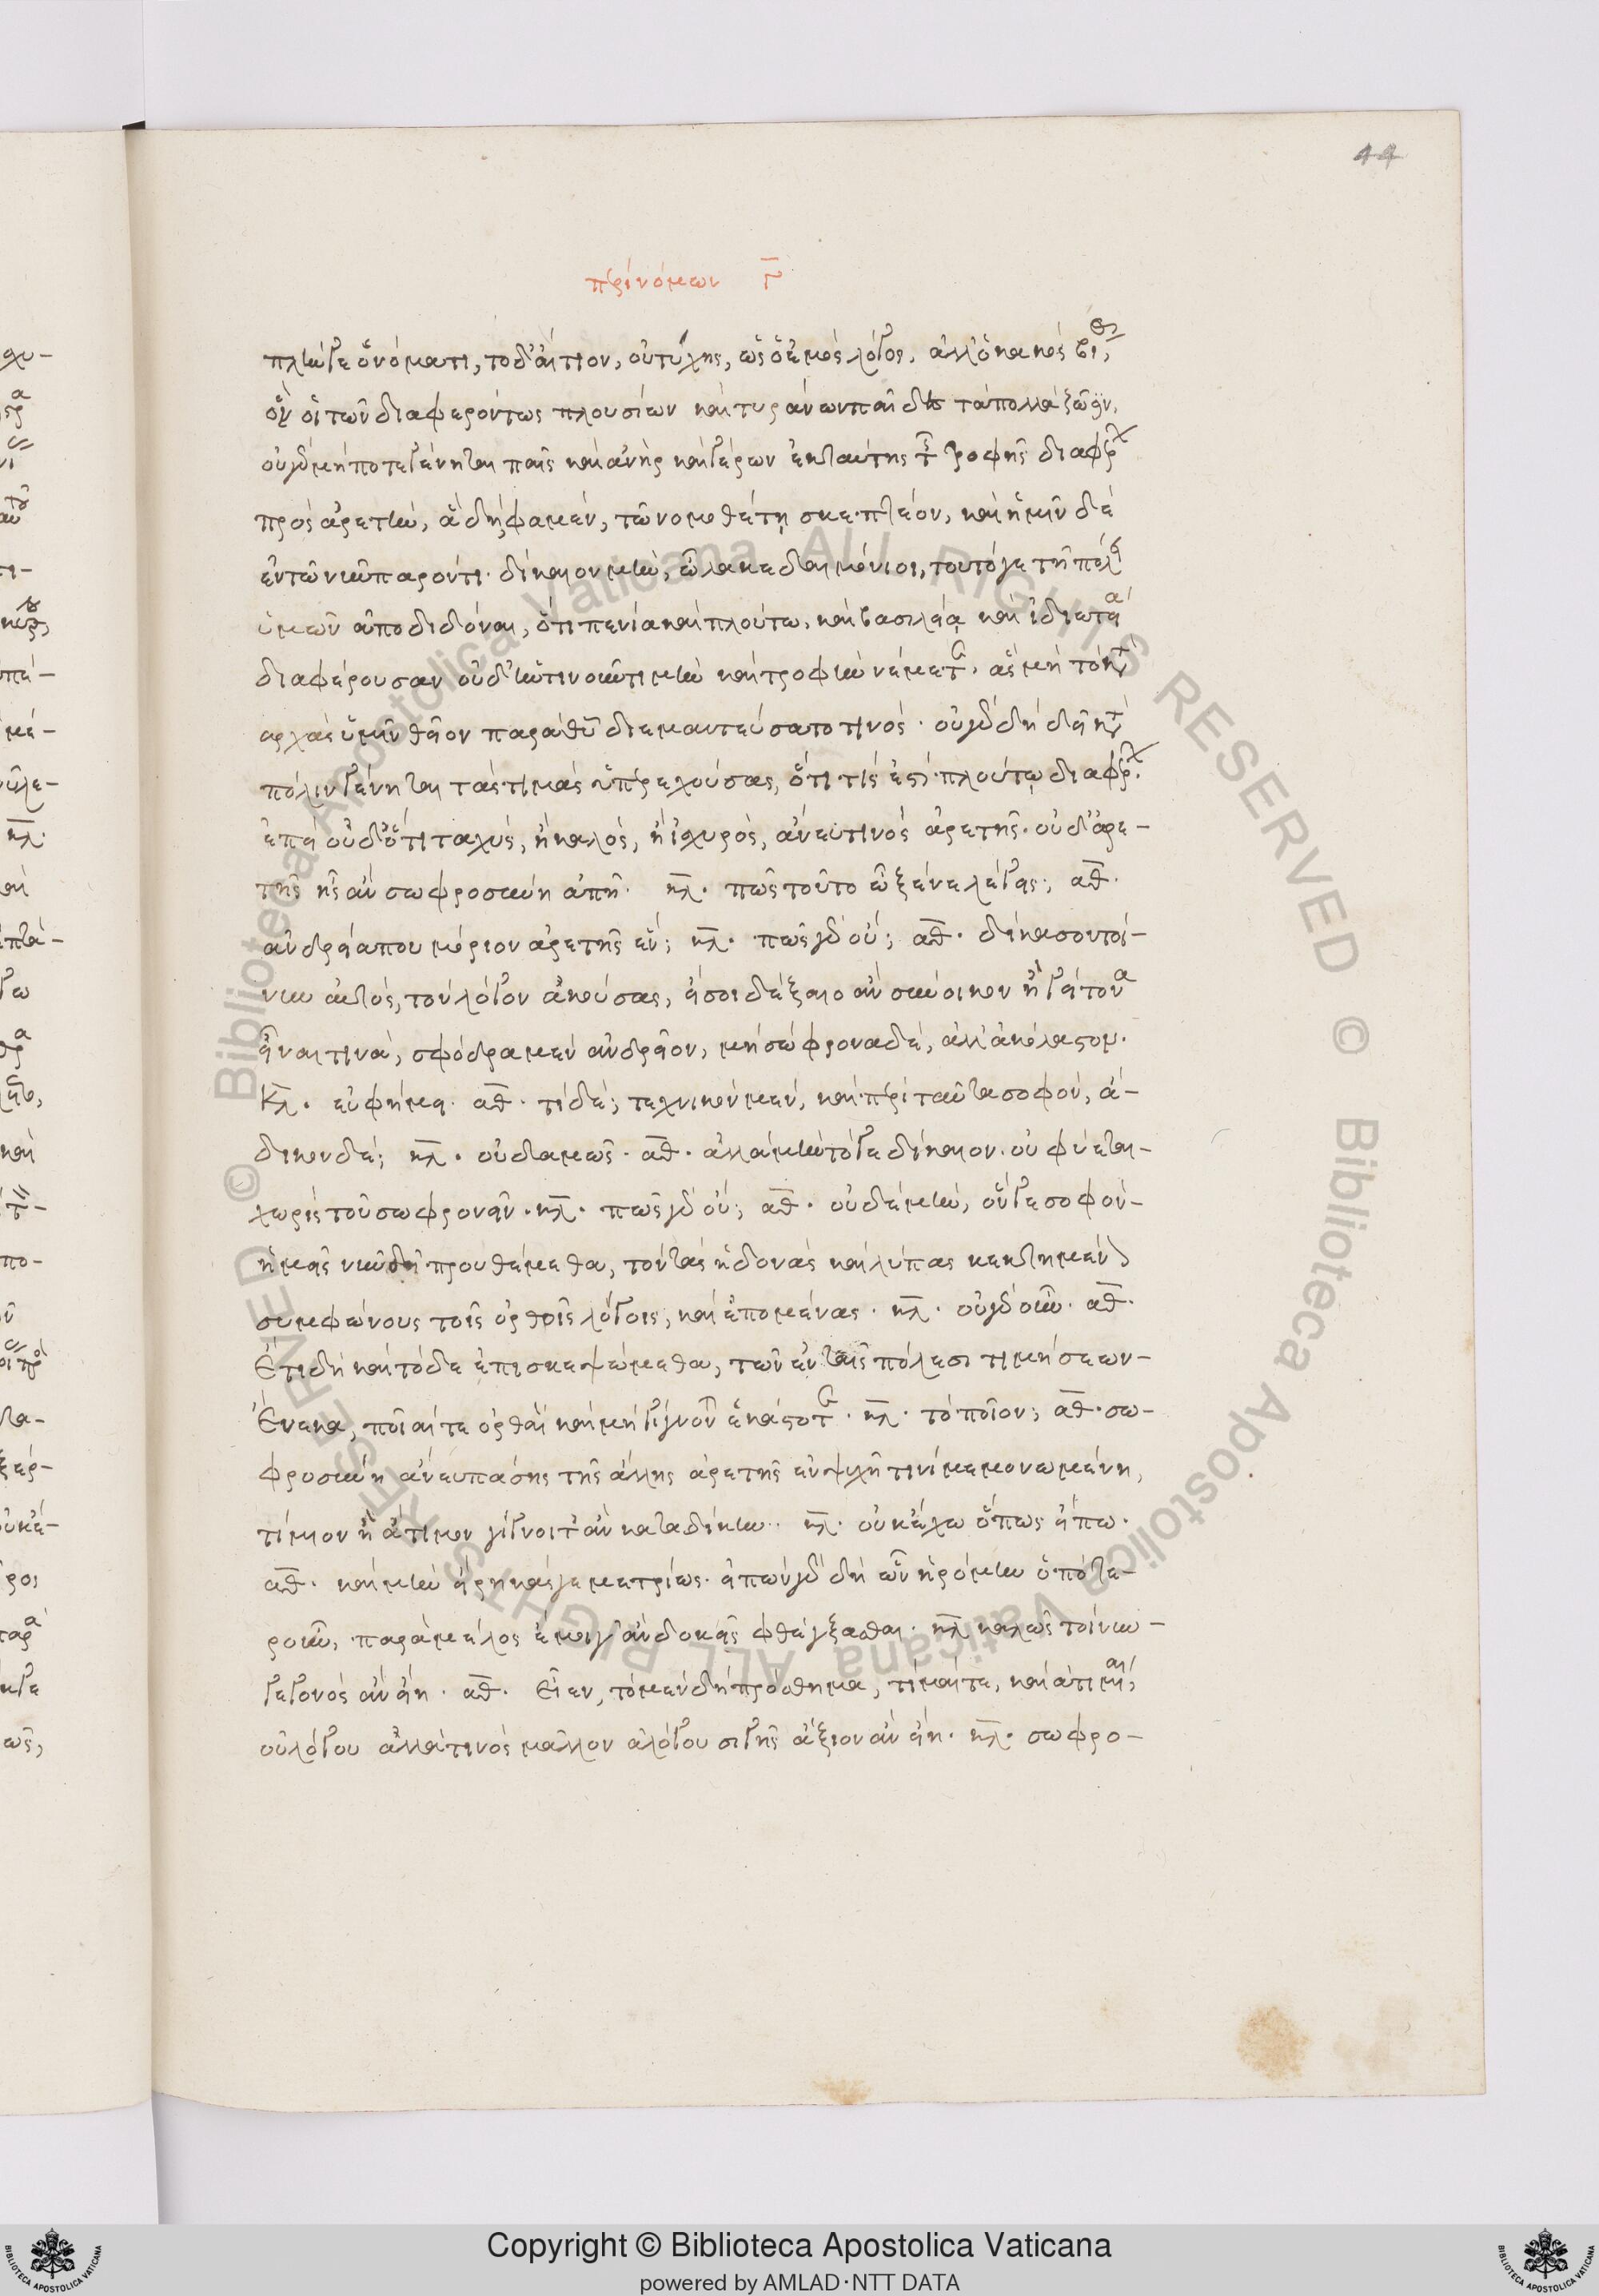 44
περὶ νόμων γ̅
πλὴν γε ὀνόματι, τὸ δ' αἴτιον, οὐ τύχης, ὡς ὁ ἐμὸς λόγος. ἀλλ' ὁ κακὸς βίος,
ὃν οἱ τῶν διαφερόντως πλουσίων καὶ τυράννων παῖδες τὰ πολλὰ ζῶσιν.
οὐ γὰρ μή ποτε γένηται παῖς καὶ ἀνὴρ καὶ γέρων ἐκ ταύτης τῆς τροφῆς διαφέρων
πρὸς ἀρετήν, ἃ δή φαμεν, τῶ νομοθέτῃ σκεπτέον, καὶ ἡμῖν δὲ
ἐν τῶ νῦν παρόντι. δίκαιον μὴν, ὦ λακεδαιμόνιοι, τοῦτό γε τῆ πόλει
ὑμῶν ἀποδιδόναι, ὅτι πενία καὶ πλούτω, καὶ βασιλείᾳ καὶ ἰδιωτείᾳ
διαφέρουσαν οὐδ' ἡντινοῦν τιμὴν καὶ τροφὴν νέμετε. ἃς μὴ τὸ κατ'
αρχὰς ὑμῖν θεῖον παρὰ θεοῦ διεμαντεύσατο τινός. οὐ γὰρ δὴ δεῖ κατὰ
πόλιν γένηται τὰς τιμὰς ὑπερεχούσας, ὅτι τίς ἐστι πλούτῳ διαφέρων.
ἐπεὶ οὐδ' ὅτι ταχὺς, ἢ καλὸς, ἢ ἰσχυρὸς, ἄνευ τινὸς ἀρετῆς. οὐδ' ἀρε-
τῆς ἧς ἂν σωφροσύνη ἀπῆ. κλ. πῶς τοῦτο ὦ ξένε λέγεις; αθ.
ἀνδρεία που μόριον ἀρετῆς ἕν; κλ. πῶς γὰρ οὔ; αθ. δίκασον τοί-
νυν αὐτὸς, τὸν λόγον ἀκούσας, εἴ σοι δέξαιο ἂν σύνοικον ἢ γείτονα
εἶναι τινὰ, σφόδρα μὲν ἀνδρεῖον, μὴ σώφρονα δὲ, ἀλλ' ἀκόλαστον.
Κλ. εὐφήμει. αθ. τί δέ; τεχνικὸν μὲν, καὶ περὶ ταῦτα σοφὸν, ἄ-
δικον δέ; κλ. οὐδαμῶς. αθ. ἀλλὰ μὴν τό γε δίκαιον. οὐ φύεται-
χωρὶς τοῦ σωφρονεῖν. κλ. πῶς γὰρ οὔ; αθ. οὐδὲ μὴν, ὅν γε σοφὸν-
ἡμεῖς νῦν δὴ προυθέμεθα, τὸν τὰς ἡδονὰς καὶ λύπας κεκτημένον
συμφώνους τοῖς ὀρθοῖς λόγοις, καὶ ἑπομένας. κλ. οὐ γὰρ οὖν. αθ.
Ἔτι δὴ καὶ τόδε ἐπισκεψώμεθα, τῶν ἐν ταῖς πόλεσι τιμήσεων-
Ἕνεκα, ποῖαί τε ὀρθαὶ καὶ μὴ γίγνονται ἑκάστοτε. κλ. τὸ ποῖον; αθ. σω-
φροσύνη ἄνευ πάσης τῆς ἄλλης ἀρετῆς ἐν ψυχῆ τινὶ μεμονωμένη,
τίμιον ἢ ἄτιμον γίγνοιτ' ἂν κατὰ δίκην. κλ. οὐκ ἔχω ὅπως εἴπω.
αθ. καὶ μὴν εἴρηκάς γε μετρίως. εἰπὼν γὰρ δὴ ὧν ἠρόμην ὁπότε-
ρουν, παρὰ μέλος ἔμοιγ' ἂν δοκεῖς φθέγξασθαι. κλ. καλῶς τοίνυν-
γεγονὸς ἂν εἴη. αθ. Εἶεν, τὸ μὲν δὴ πρόσθημα, τιμαί τε, καὶ ἀτιμίαι,
οὐ λόγου ἀλλά τινὸς μᾶλλον ἀλόγου σιγῆς ἄξιον ἂν εἴη. κλ. σωφρο-
Copyright © Biblioteca Apostolica Vaticana
powered by AMLAD·NTT DATA